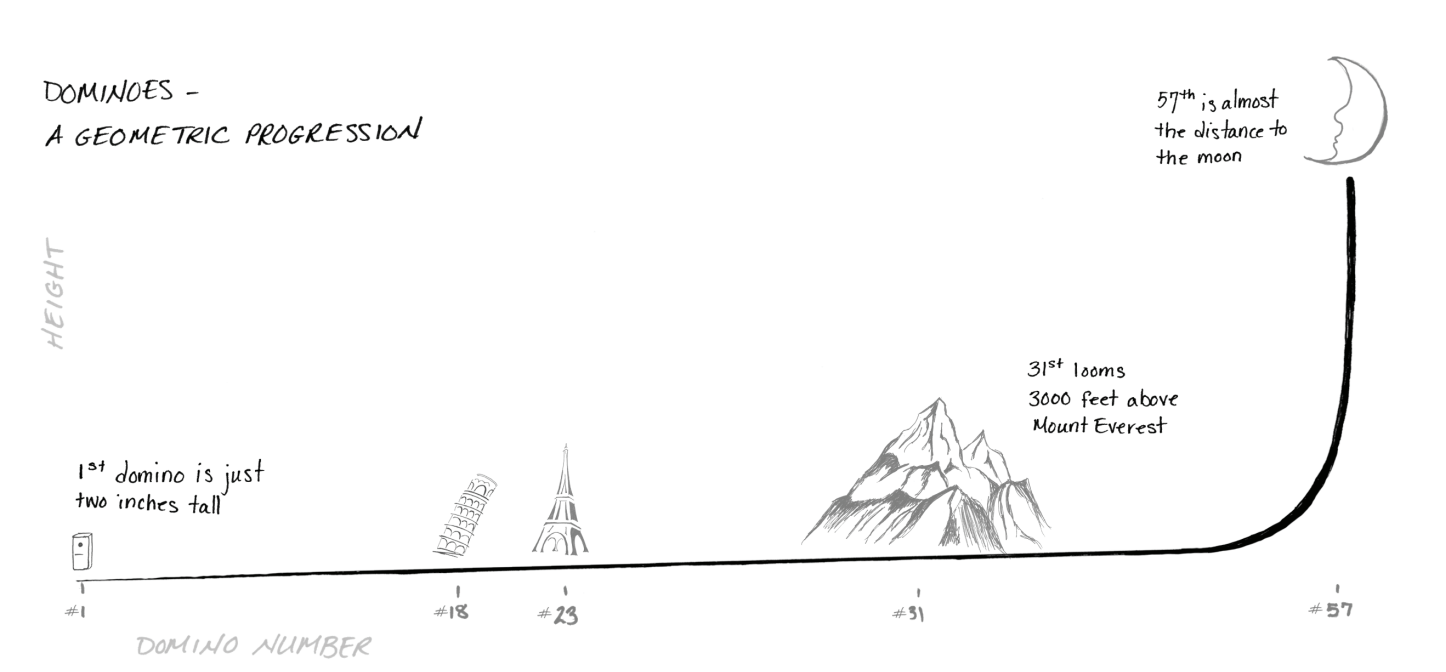 DOMINOES -
A GEOMETRIC PROGRESSION
57th is almost
the distance to
the moon
HEIGHT
31st looms
3000 feet above
Mount Everest
1st domino is just
two inches tall
#1
#18
#23
#31
#57
DOMINO NUMBER